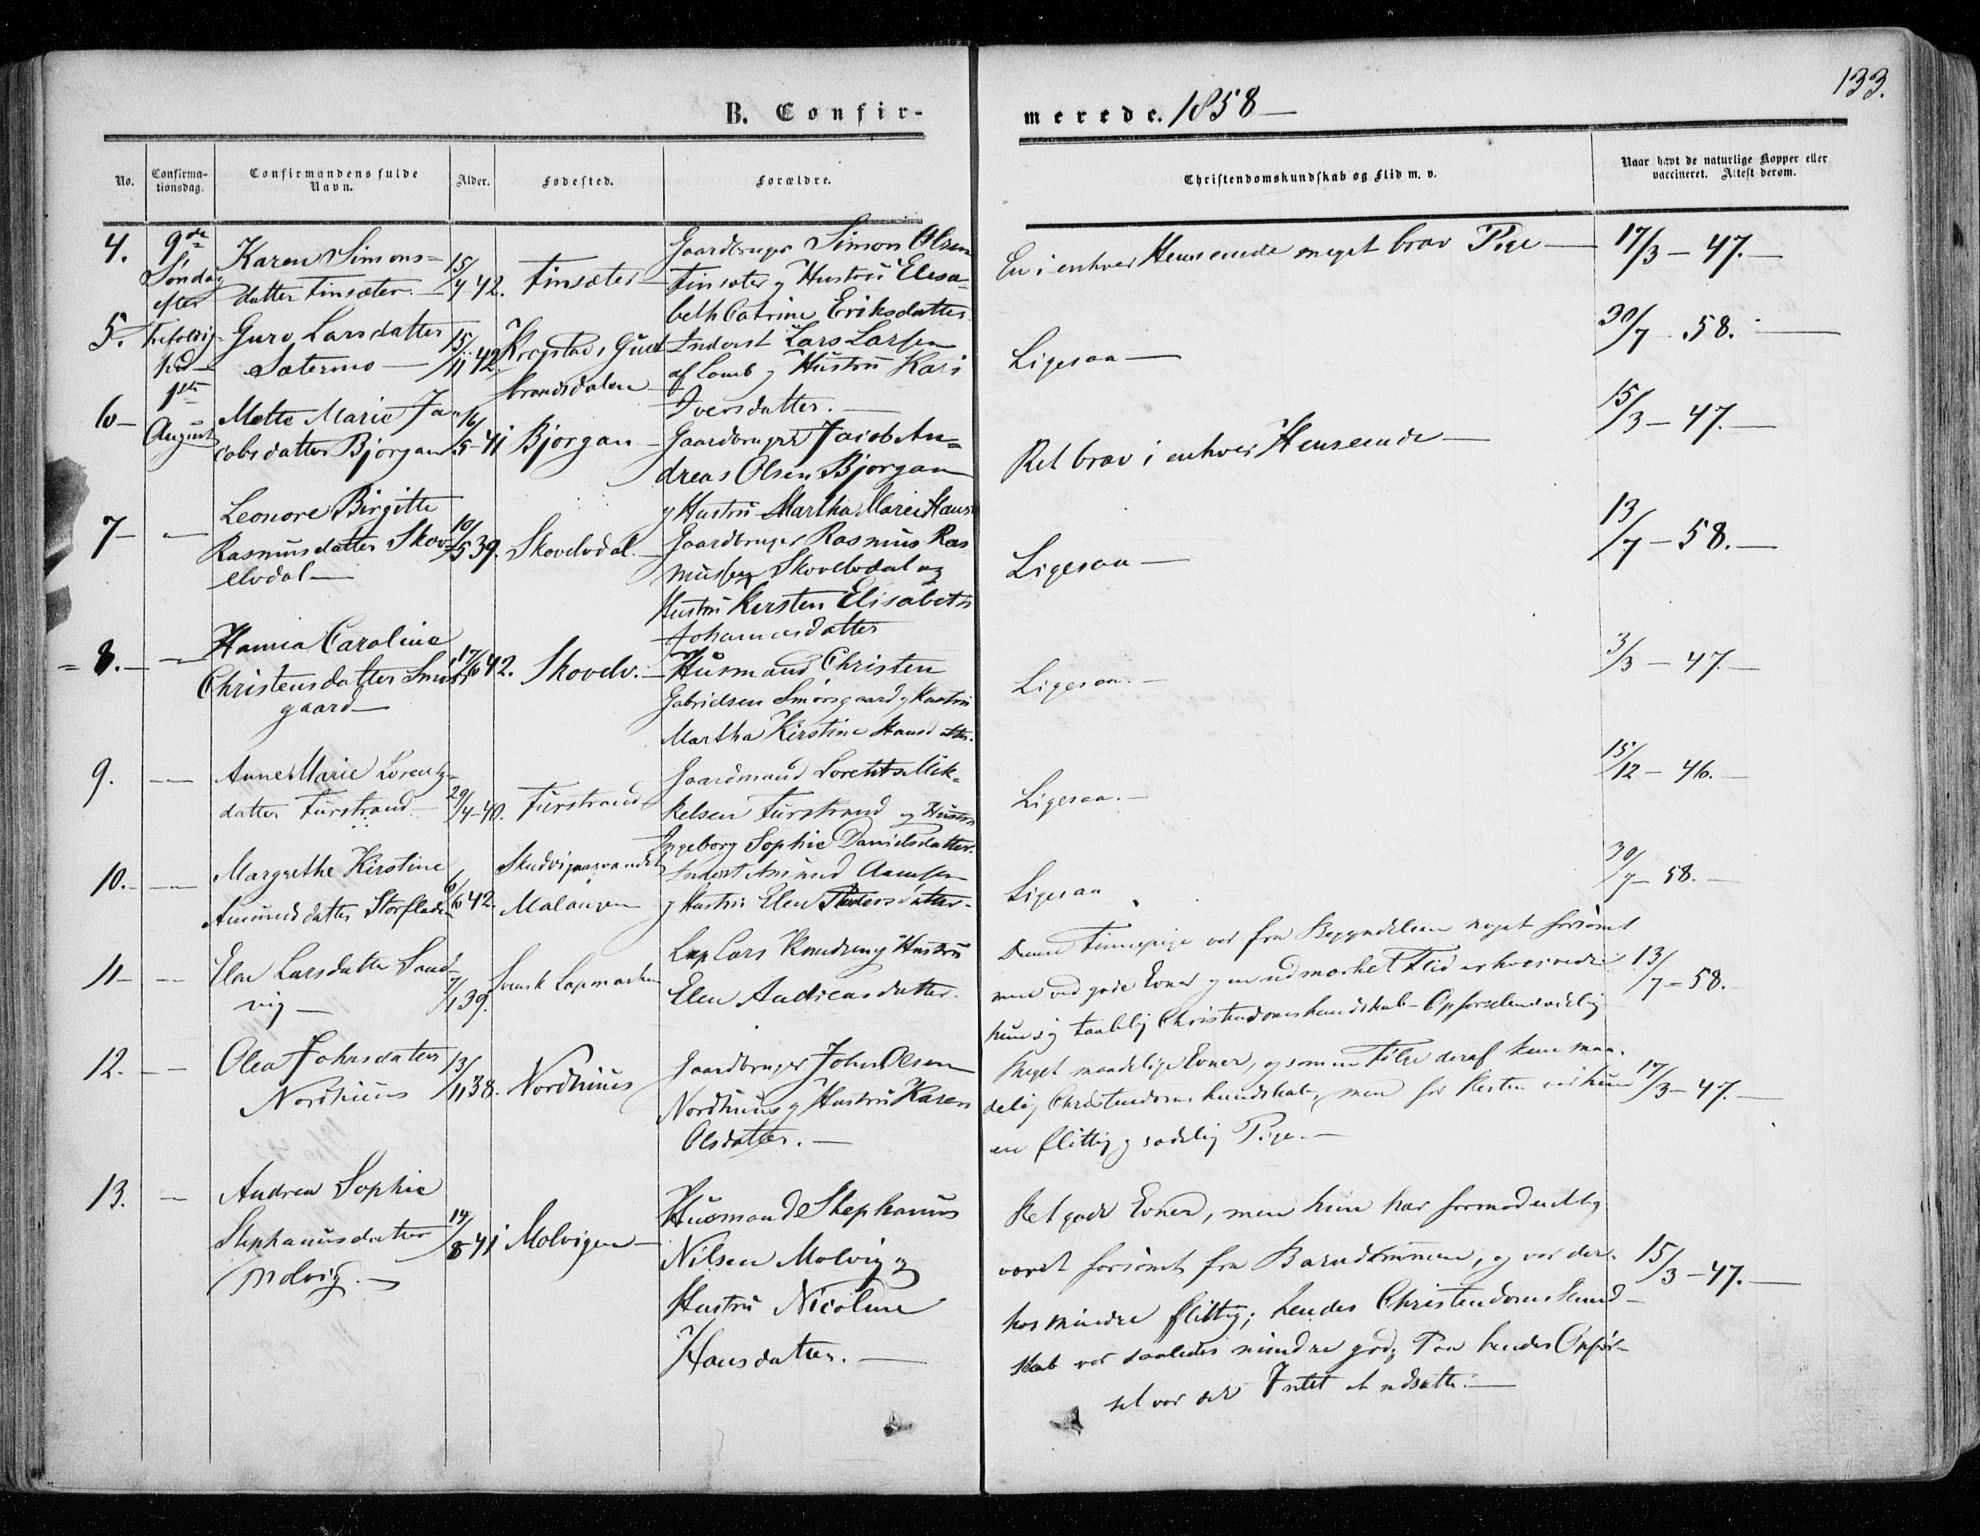 133.
B. Confir-
merede. 1858 —
No.
Confirma-
tionsdag.
Confirmandens fulde
Navn.
Alder.
Fødested.
Forældre.
Christendomskundskab og Flid m. v.
Naar havt de naturlige Kopper eller
vaccineret. Attest derom.
4.
9de
Søndag
efter
Trefoldig-
hed
1ste
August
Karen Simons-
datter Finsæter. —
15/4-42.
Finsæter —
Gaardbruger Simon Olsen
Finsæter og Hustru Elisa-
beth Catrine Eriksdatter
En i enhver Henseende meget brav Pige —
17/3 – 47. —
5.
Guro Larsdatter
Sætermo —
15/11 42.
Krogstad, Guld-
brandsdalen —
Inderst Lars Larsen
af Lomb og Hustru Kari
Iversdatter. —
Ligesaa —
30/7 – 58. —
6 –
Mette Marie Ja-
cobsdatter Bjørgan
16/5-41
Bjørgan —
Gaardbruger Jacob An-
dreas Olsen Bjørgan
og Hustru Martha Marie Hans
Ret brav i enhver Henseende —
15/3 – 47. —
7 –
—
Leonore Birgitte
Rasmusdatter Skov-
elvdal —
10/5 39.
Skovelvdal. —
Gaardbruger Rasmus Ras
mussen Skovelvdal og
Hustru Kirsten Elisabeth
Johannesdatter
Ligesaa —
13/7 – 58. —
= 8. —
—
Hanna Caroline
Christensdatter Smørs
gaard —
17/6 42.
Skovelv. —
Husmand Christen
Gabrielsen Smørsgaard og Hustru
Martha Kirstine Hansdatter.
Ligesaa. —
3/3 – 47. —
9.
—
Anne Marie Lorentz-
datter Furstrand —
29/4-40.
Furstrand
Gaardmand Lorentz Mik-
kelsen Furstrand og Hustru
Ingeborg Sophie Danielsdatter.
Ligesaa. —
15/12 – 46. —
10. —
—
Margrethe Kirstine
Amundsdatter Storfladen
6/6 42.
Malangen
Inderst Amund
og Hustru Elen Pedersdatter.
Ligesaa
30/7 – 58. —
11 –
—
Elen Larsdatter Sand-
vig —
7/1 39.
Svensk Lapmarken
Lap Lars og Hustru
Elen Andreasdatter.
Denne Finnepige var fra Begyndelsen meget forsømt
men ved gode Evner og en udmærket Flid erhvervede
hun sig taalelig Christendomskundskab – Opførsel sædelig
13/7 – 58.
12. —
—
Olea Johnsdatter
Nordhuus
13/11 38.
Nordhuus
Gaardbruger John Olsen
Nordhuus og Hustru Karen
Olsdatter. —
Meget maadelige Evner, og som en Følge deraf kun maa-
delig Christendomskundskab, men for Resten var hun
en flittig og sædelig Pige. —
17/3 – 47. —
13.
—
Andrea Sophie
Stephanusdatter
Molvig. —
14/8-41
Molvigen —
Husmand Stephanus
Nilsen Molvig og
Hustru Nicoline
Hansdatter. —
Ret gode Evner, men hun har formodentlig
været forsømt fra Barndommen, og var der-
hos mindre flittig; hendes Christendomskund-
skab var saaledes mindre god; Paa hendes Opfør-
sel var der Intet at udsætte. —
15/3 – 47. —